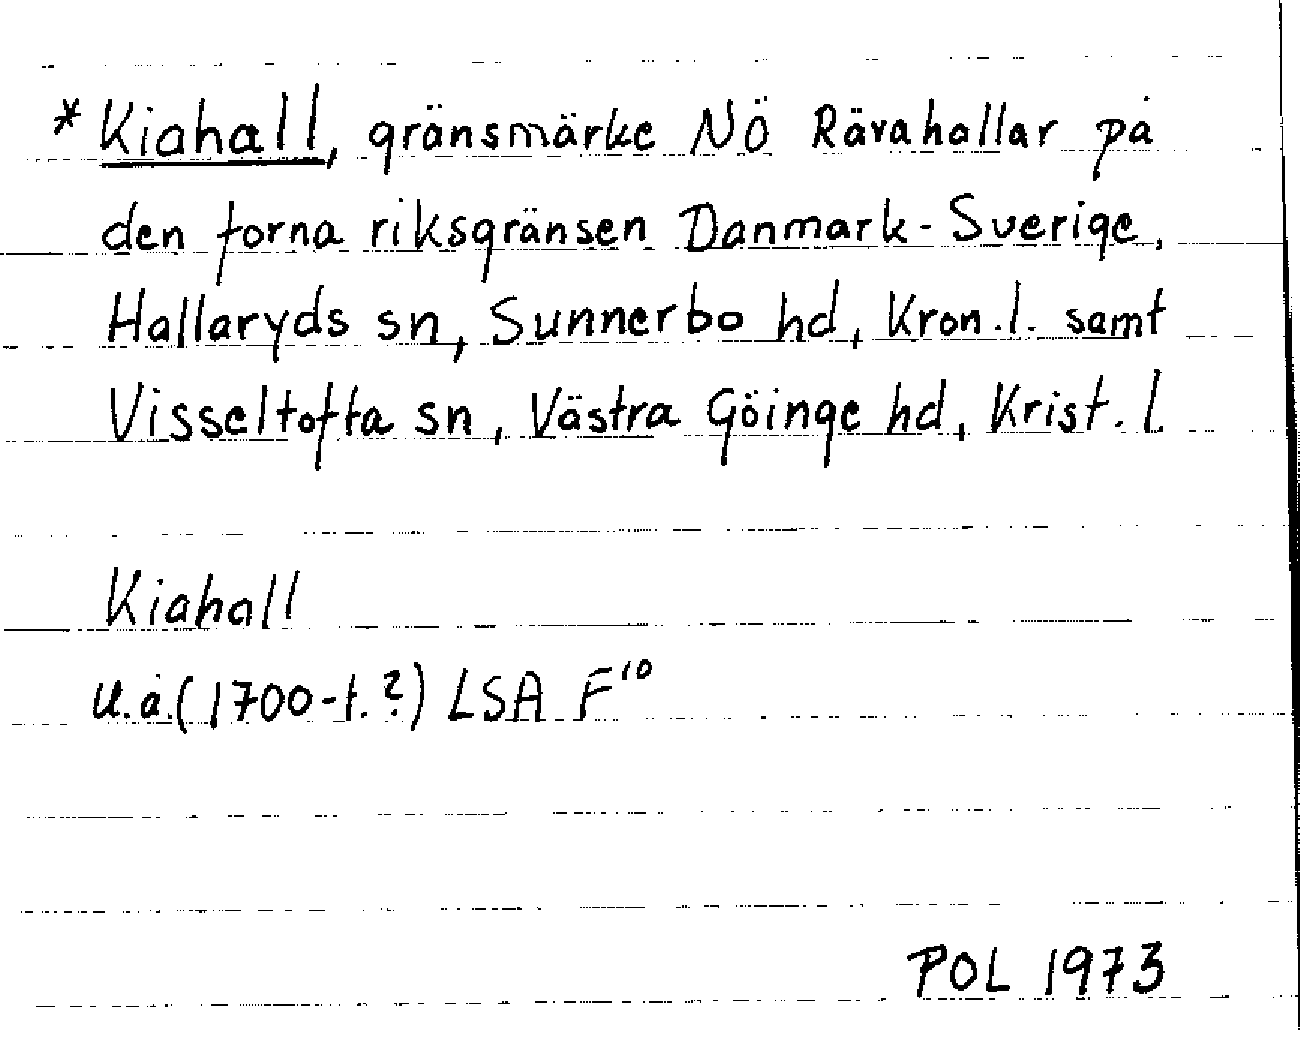 * Kiahall, gränsmärke NÖ Rävahallar på
den forna riksgränsen Danmark-Sverige,
Hallaryds sn, Sunnerbo hd, Kron.l. samt
Visseltofta sn, Västra Göinge hd, Krist. l.
Kiahall
U.å. (1700-t.?) LSA F¹⁰
POL 1973